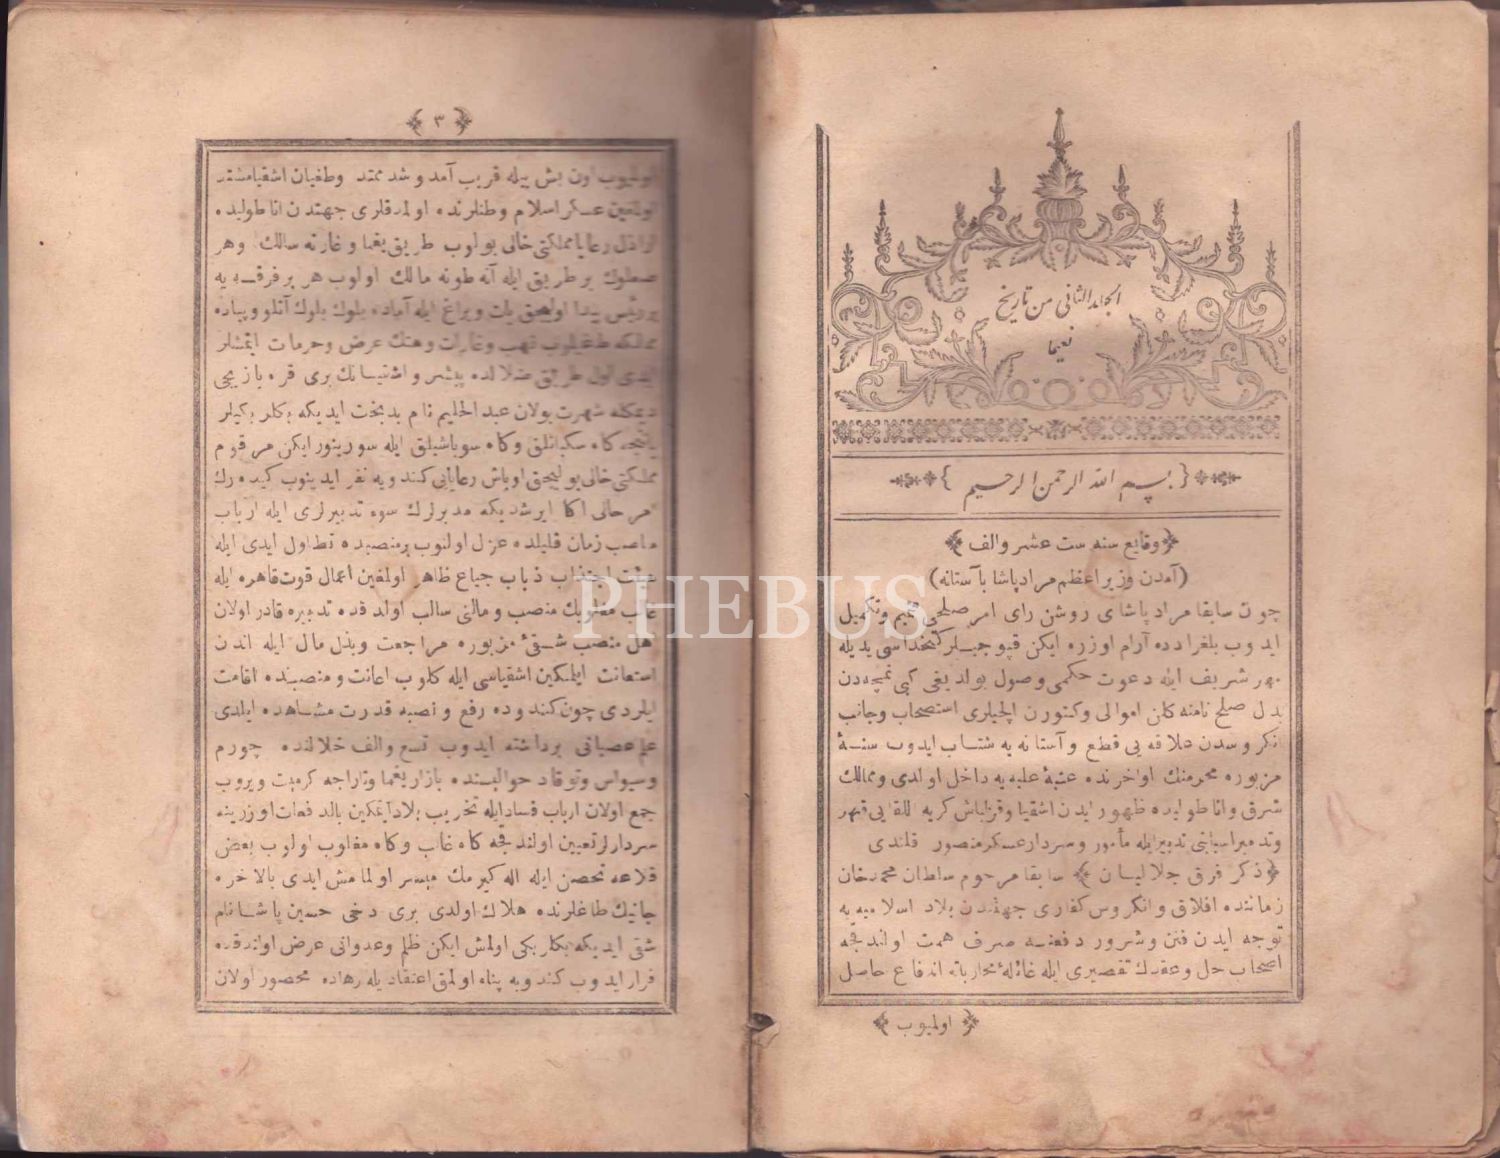 الجلد الثانی من تاریخ
نعیما
بسم الله الرحمن الرحیم
وقایع سنه ست عشر والف
(آمدن وزیر اعظم مراد پاشا بآستانه)
چون سابقا مراد پاشای روشن رای امر صلحی تتمیم وتکمیل
ایدوب بلغرادده آرام اوزره ایکن قپوجیلر کتخداسی یدیله
شریف ایله دعوت حکمی وصول بولدیغی کبی نمچه‌دن
بدل صلح نامنه کلن اموالی وکتورن ایلچیلری استصحاب وجانب
انکروسدن علاقه‌یی قطع وآستانه‌یه شتاب ایدوب سنۀ
مزبوره محرمنك اواخرنده عتبۀ علیه‌یه داخل اولدی وممالك
شرق واناطولیده ظهور ایدن اشقیا وقزلباش کریه اللقایی قهر
وتدمیر اسبابنی تدبیر ایله مأمور وسردار عسکر منصور قلندی
ذکر فرق جلالیان سابقا مرحوم سلطان محمد خان
زماننده افلاق وانکروس کفاری جهتندن بلاد اسلامیه‌یه
توجه ایدن فتن وشرور دفعنه صرف همت اولندقجه
اصحاب حل وعقدك تقصیری ایله غائلۀ محاربانه اندفاع حاصل
اولمیوب
٣
اولمیوب اون بش ییله قریب آمد وشد ممتد وطغیان اشقیا مشتد
اولمغین عسکر اسلام وطنلرنده اولمدقلری جهتدن اناطولیده
اراذل رعایا مملکتی خالی بولوب طریق یغما وغارته سالك وهر
صعلوك بر طریق ایله آته طونه مالك اولوب هر بر فرقه‌یه
بر رئیس پیدا اولیجق یات ویراغ ایله آماده بلوك بلوك آتلو وپیاده
مملکته طاغیلوب نهب وغارات وهتك عرض وحرمات ایتمشلر
ایدی اول طریق ضلالده پیشرو واشقیانك بری قره یازیجی
دیمکله شهرت بولان عبد الحلیم نام بدبخت ایدیکه بکلر بکیلر
یاننجه کاه سکبانلق وکاه سوباشیلق ایله سورینور ایکن مرقوم
مملکتی خالی بولیجق اوباش رعایایی کندویه نفر ایدینوب کیده‌رك
حالی اکا ایرشدیکه مدبرلرك سوء تدبیرلری ایله ارباب
مناصب زمان قلیلده عزل اولنوب بر منصبده تطاول ایدی ایله
اجتذاب ذباب جیاع ظاهر اولمغین اعمال قوت قاهره ایله
غالب مغلوبك منصب ومالنی سالب اولدقده تدبیره قادر اولان
اهل منصب شقئ مزبوره مراجعت وبذل مال ایله اندن
استعانت ایلمکین اشقیاسی ایله کلوب اعانت ومنصبنده اقامت
ایلردی چون کندوده رفع ونصبه قدرت مشاهده ایلدی
علم عصیانی برداشته ایدوب تسع والف خلالنده چورم
وسیواس وتوقاد حوالیسنده بازار یغما وتاراجه کرمیت ویروب
جمع اولان ارباب فساد ایله تخریب بلاد ایتمکین بالدفعات اوزرینه
سردارلر تعیین اولندقجه کاه غالب وکاه مغلوب اولوب بعض
قلاعه تحصن ایله اله کیرمك میسر اولمامش ایدی بالاخره
جانیك طاغلرنده هلاك اولدی بری دخی حسین پاشا نام
شقی ایدیکه بکلربکی اولمش ایکن ظلم وعدوانی عرض اولندقده
فرار ایدوب کندوبه پناه اولمق اعتقادیله رهاده محصور اولان